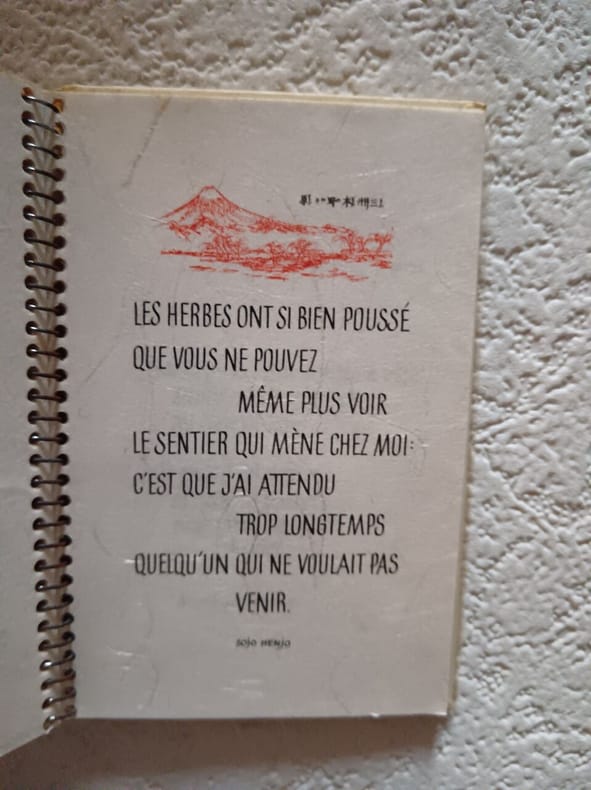 LES HERBES ONT SI BIEN POUSSÉ
QUE VOUS NE POUVEZ
MÊME PLUS VOIR
LE SENTIER QUI MÈNE CHEZ MOI:
C'EST QUE J'AI ATTENDU
TROP LONGTEMPS
QUELQU'UN QUI NE VOULAIT PAS
VENIR.
SOJO HENJO